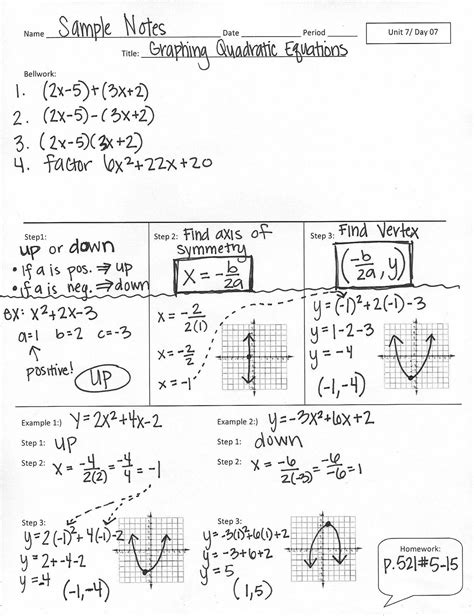 Name Sample Notes Date Period
Unit 7/ Day 07
Title: Graphing Quadratic Equations
Bellwork:
1. (2x-5)+(3x+2)
2. (2x-5)-(3x+2)
3. (2x-5)(3x+2)
4. factor 6x²+22x+20
Step1:
up or down
• if a is pos. ⇒ up
• if a is neg. ⇒ down
ex: x²+2x-3
a=1 b=2 c=-3
↑
positive!
UP
Step 2: Find axis of
symmetry
x = -b/2a
x = -2/2(1)
x = -2/2
x = -1
Step 3: Find Vertex
(-b/2a, y)
y=(-1)²+2(-1)-3
y=1-2-3
y=-4
(-1,-4)
Example 1:) y=2x²+4x-2
Step 1: up
Step 2: x = -4/2(2) = -4/4 = -1
Step 3:
y=2(-1)²+4(-1)-2
y=2+-4-2
y=-4
(-1,-4)
Example 2:) y=-3x²+6x+2
Step 1: down
Step 2: x = -6/2(-3) = -6/-6 = 1
Step 3:
y=-3(1)²+6(1)+2
y=-3+6+2
y=5
(1,5)
Homework:
p.521#5-15